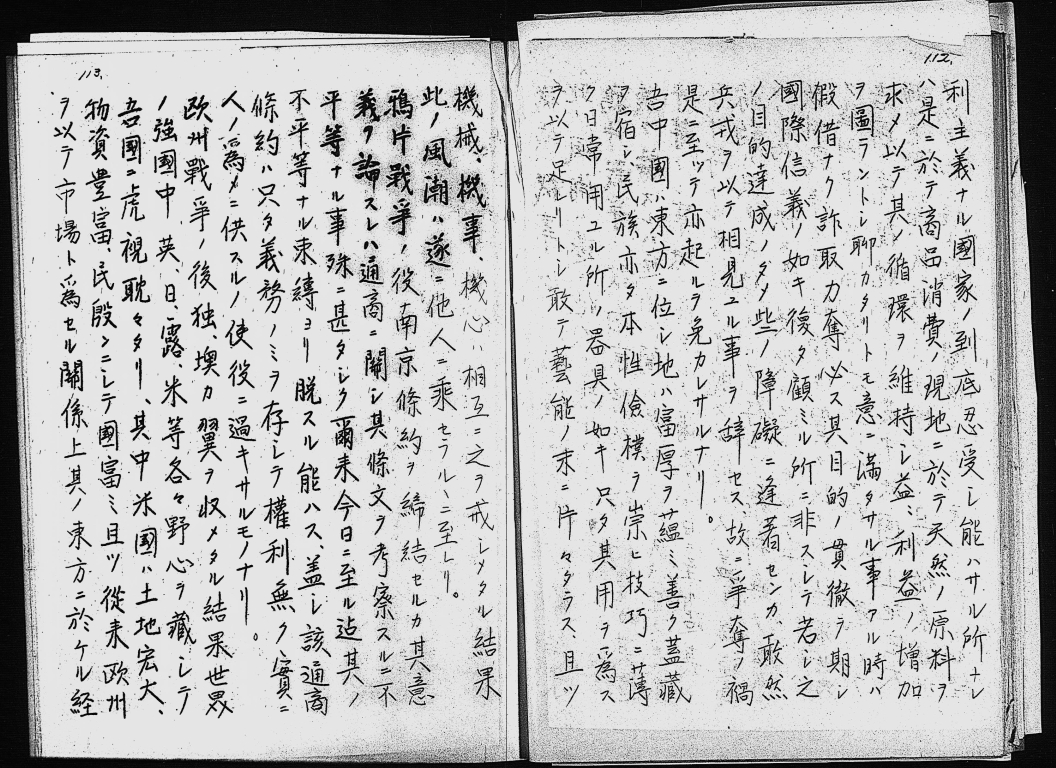 112.
利主義ナル國家ノ到底忍受シ能ハサル所ナレ
ハ是ニ於テ商品消費ノ現地ニ於テ天然ノ原料ヲ
求メ以テ其ノ循環ヲ維持シ益々利益ノ増加
ヲ圖ラントシ聊カタリトモ意ニ滿タサル事アル時ハ
假借ナク詐取力奪必ス其目的ノ貫徹ヲ期シ
國際信義ノ如キ復タ顧ミル所ニ非スシテ若シ之
ノ目的達成ノタメ些ノ障礙ニ逢着センカ、敢然
兵戒ヲ以テ相見ユル事ヲ辞セス、故ニ爭奪ノ禍
是ニ至ッテ亦起ルヲ免カレサルナリ。
吾中國ハ東方ニ位シ地ハ富厚ヲ蘊ミ善ク蓋藏
ヲ宿シ民族亦タ本性儉樸ヲ崇ヒ技巧ニ薄
ク日常用ユル所ノ器具ノ如キ只タ其用ヲ爲ス
ヲ以テ足レリトシ敢テ藝能ノ末ニ片々タラス、且ツ
113.
機械、機事、機心ハ相互ニ之ヲ戒シメタル結果
此ノ風潮ハ遂ニ他人ニ乘セラルヽニ至レリ。
鴉片戰爭ノ役南京條約ヲ締結セルカ其意
義ヲ論スレハ通商ニ關シ其條文ヲ考察スルニ不
平等ナル事殊ニ甚タシク爾来今日ニ至ル迠其ノ
不平等ナル束縛ヨリ脱スル能ハス、盖シ該通商
條約ハ只タ義務ノミヲ存シテ權利無ク、實ニ
人ノ爲メニ供スルノ使役ニ過キサルモノナリ。
欧州戰爭ノ後独、墺カ翼ヲ収メタル結果世界
ノ強國中英、日、露、米等各々野心ヲ藏シテ
吾國ニ虎視耽々タリ、其中米國ハ土地宏大、
物資豊富、民殷ンニシテ國富ミ且ツ從来欧州
ヲ以テ市場ト爲セル關係上其ノ東方ニ於ケル経